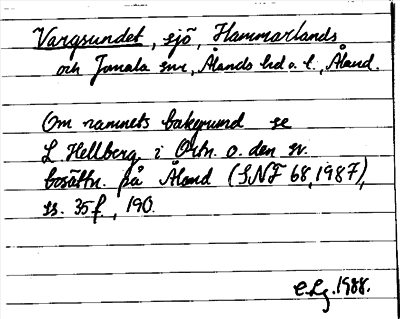 Vargsundet, sjö, Hammarlands
och Jomala snr, Ålands hd o. l., Åland.
Om namnets bakgrund se
L Hellberg i Ortn. o. den sv.
bosättn. på Åland (SNF 68, 1987),
ss. 35f., 190.
C.Lg. 1988.